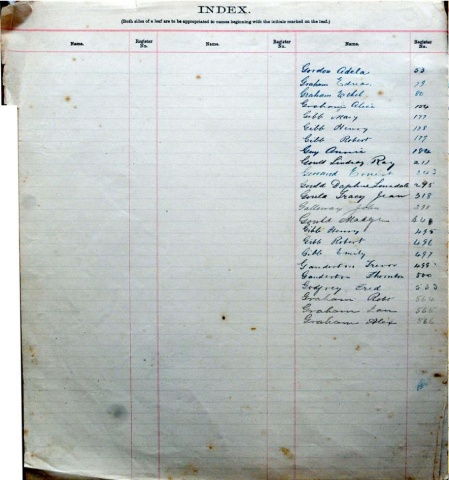 INDEX.
(Both sides of a leaf are to be appropriated to names beginning with the initials marked on the leaf.)
Name. Register No. Name. Register No. Name. Register No.
Gordon Adela 53
Graham Edna 79
Graham Ethel 80
Graham Alice 104
Gibb Mary 177
Gibb Henry 178
Gibb Robert 179
Guy Annie
Gould Lindsay Ray 211
Ernest 243
Gould Daphne 295
Gould Tracy Jean 318
Galloway John 391
Gould Madge
Gibb Henry 495
Gibb Robert 496
Gibb Emily 497
Ganderton Trevor 499
Ganderton Thornton 500
Godfrey Fred 563
Graham Robt 564
Graham Ian 565
Graham Alex 566